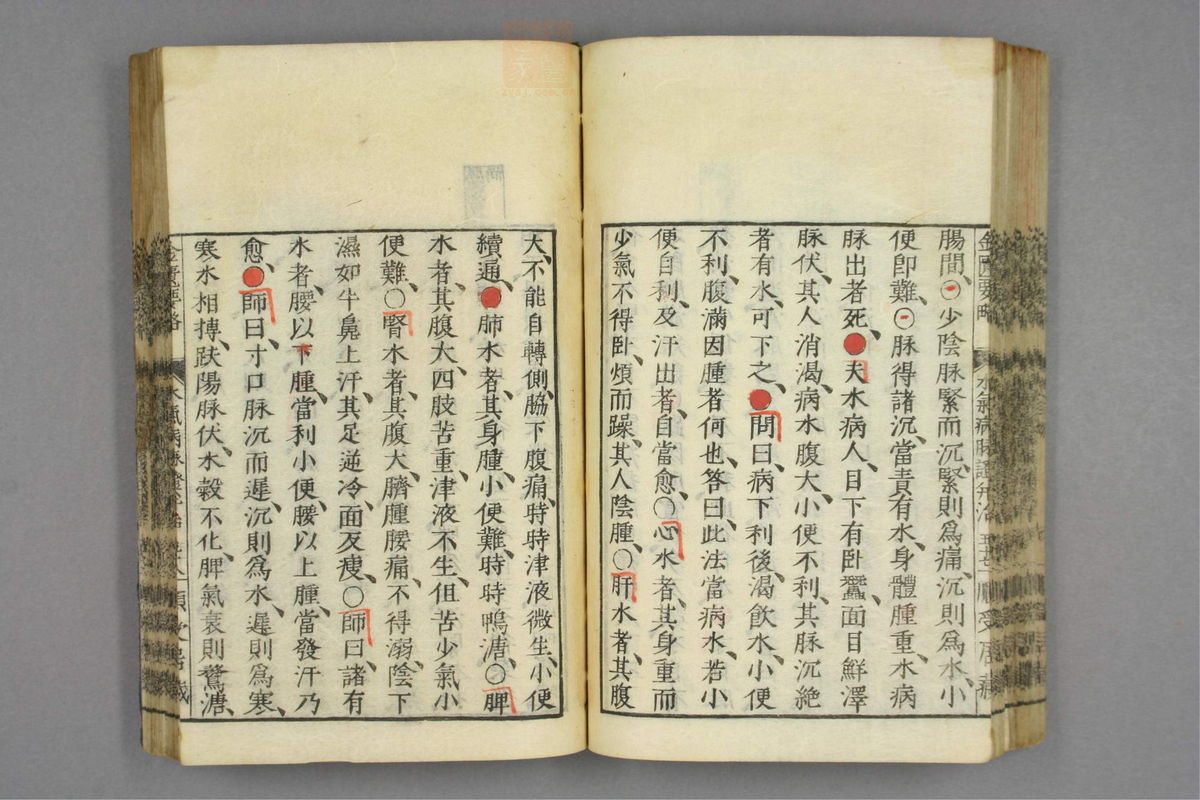 腸間、○少陰脉緊而沉、緊則爲痛、沉則爲水、小
便卽難、○脉得諸沉、當責有水、身體腫重、水病
脉出者死、●夫水病人、目下有臥蠶、面目鮮澤
脉伏、其人消渴、病水腹大、小便不利、其脉沉絕
者有水、可下之、●問曰、病下利後、渴飲水、小便
不利、腹滿因腫者何也、答曰、此法當病水、若小
便自利、及汗出者、自當愈、○心水者、其身重而
少氣不得臥、煩而躁、其人陰腫、○肝水者、其腹
大、不能自轉側、脇下腹痛、時時津液微生、小便
續通、●肺水者、其身腫、小便難、時時鴨溏、○脾
水者、其腹大、四肢苦重、津液不生、但苦少氣小
便難、○腎水者、其腹大、臍腫腰痛、不得溺、陰下
濕如牛鼻上汗、其足逆冷、面反瘦、○師曰、諸有
水者、腰以下腫、當利小便、腰以上腫、當發汗乃
愈、●師曰、寸口脉沉而遲、沉則爲水、遲則爲寒、
寒水相搏、趺陽脉伏、水穀不化、脾氣衰則鶩溏、